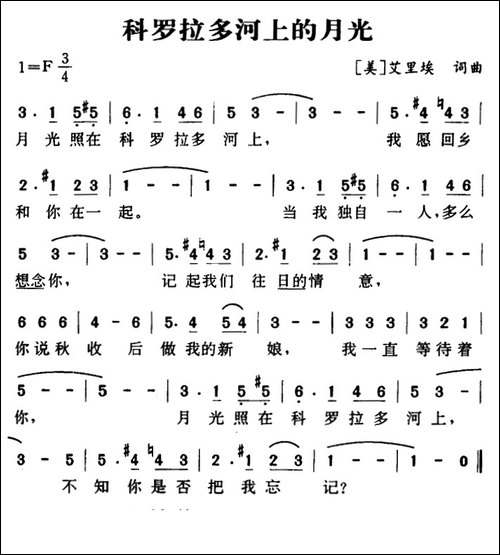 科罗拉多河上的月光
1=F 3/4 [美]艾里埃 词曲
3· 1 5 #5 | 6· 1 4 6 | 5 3 - | 3 - - | 5· #4 ♮4 3 |
月光照在 科罗拉多 河上, 我愿回乡
2· #1 2 3 | 1 - - | 1 - - | 3· 1 5 #5 | 6· 1 4 6 |
和你在一起。 当我独自一人,多么
5 3 - | 3 - - | 5· #4 ♮4 3 | 2· #1 2 3 | 1 - - | 1 - - |
想念你, 记起我们往日的情意,
6 6 6 | 4 - 6 | 5· 4 5 4 | 3 - - | 3 - - | 3 3 3 | 3 2 1 |
你说秋收后做我的新娘, 我一直等待着
5 - - | 5 - - | 3· 1 5 #5 | 6· 1 4 6 | 5 3 - |
你, 月光照在科罗拉多河上,
3 - 5 | 5· #4 ♮4 3 | 2· #1 2 3 | 1 - - | 1 - 0 ‖
不知你是否把我忘记?